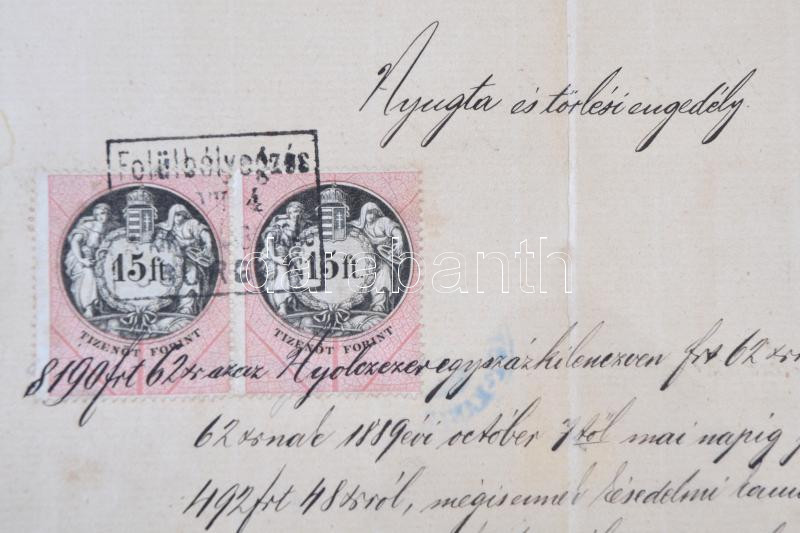 Nyugta és törlési engedély.
Felülbélyegzés
15 ft. 15 ft.
TIZENÖT FORINT TIZENÖT FORINT
darabanth
8190 frt 62 xr azaz Nyolczezeregyszázkilenczven frt 62 xr
62 xrnak 1889 évi octóber 7től mai napig
492 frt 48 xrról, mégisennek késedelmi